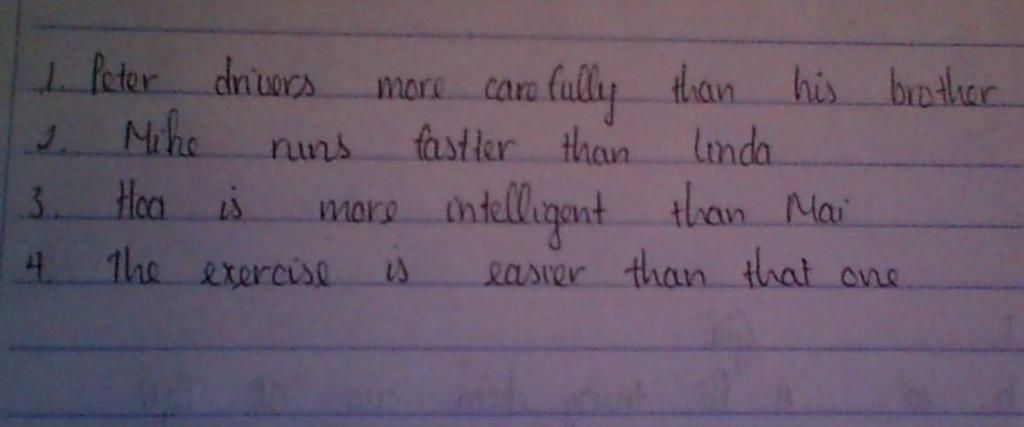 1. Peter drivers more carefully than his brother
2. Mike runs fastter than linda
3. Hoa is more intelligent than Mai
4 The exercise is easier than that one